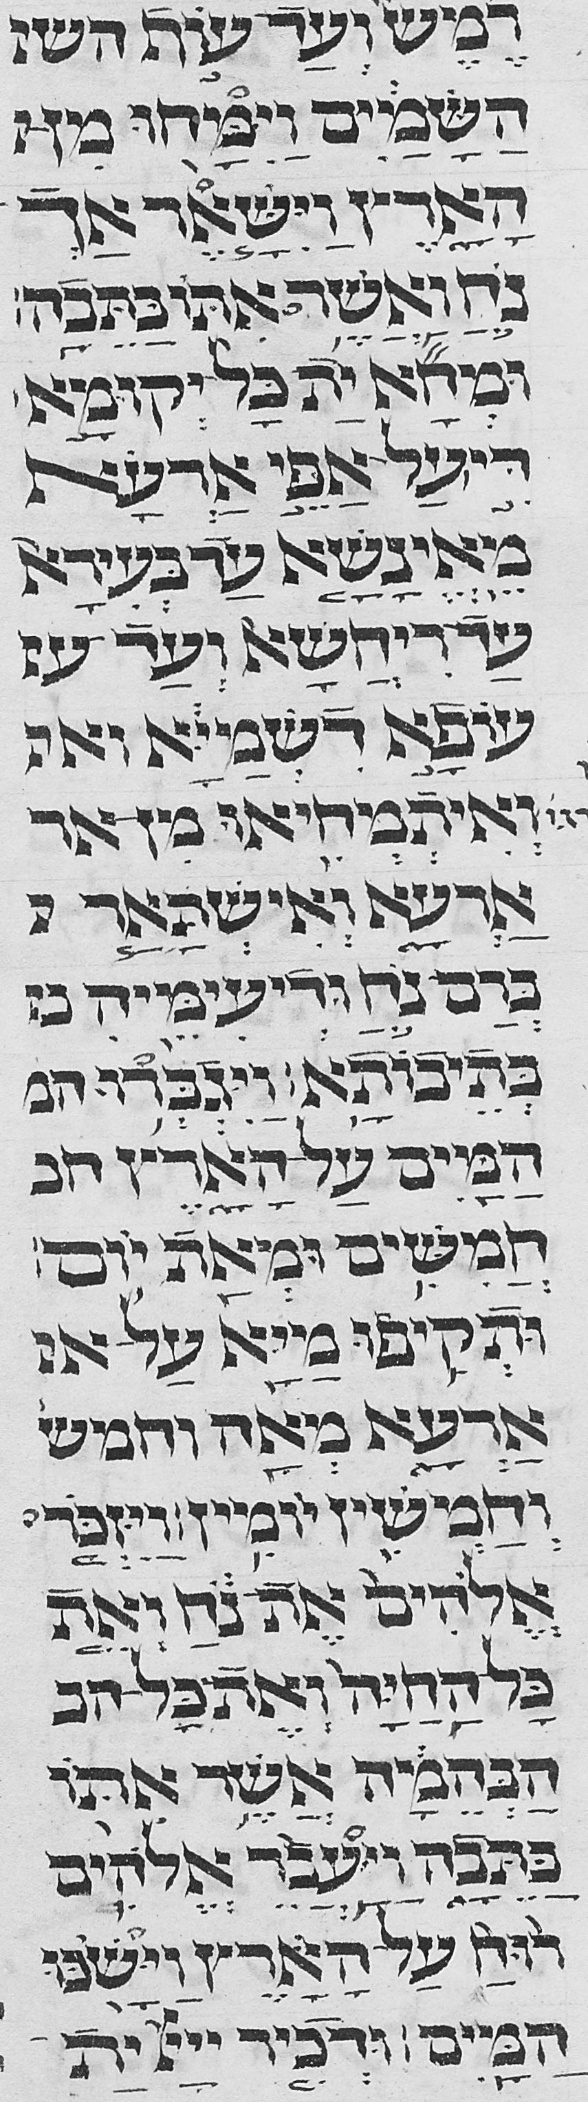 רֶמֶשׂ וְעַד עוֹף השו
הַשָּׁמַיִם וַיִּמָּחוּ מִן
הָאָרֶץ וַיִּשָּׁאֶר אַךְ
נֹחַ וַאֲשֶׁר אִתּוֹ בַּתֵּבָה׃
וּמְחָא יָת כָּל יְקוּמָא
דִּי עַל אַפֵּי אַרְעָא
מֵאֱינָשָׁא עַד בְּעִירָא
עַד רִיחֲשָׁא וְעַד עו
עוֹפָא דִּשְׁמַיָּא ואת
וְאִיתְמְחִיאוּ מִן אר
אַרְעָא וְאִישְׁתְּאַר
בְּרַם נֹחַ וּדְעִימֵּיהּ
בְּתֵיבוֹתָא׃ וַיִּגְבְּרוּ המ
הַמַּיִם עַל הָאָרֶץ חמ
חֲמִשִּׁים וּמְאַת יוֹם׃
וּתְקִיפוּ מַיָּא עַל או
אַרְעָא מְאָה וחמש
וְחַמְשִׁין יוֹמִין׃ וַיִּזְכֹּר
אֱלֹהִים אֶת נֹחַ וְאֵת
כָּל הַחַיָּה וְאֶת כָּל הב
הַבְּהֵמָה אֲשֶׁר אִתּוֹ
בַּתֵּבָה וַיַּעֲבֵר אֱלֹהִים
רוּחַ עַל הָאָרֶץ וַיָּשֹׁכּוּ
הַמָּיִם׃ וּדְכִיר יְיָ יָת